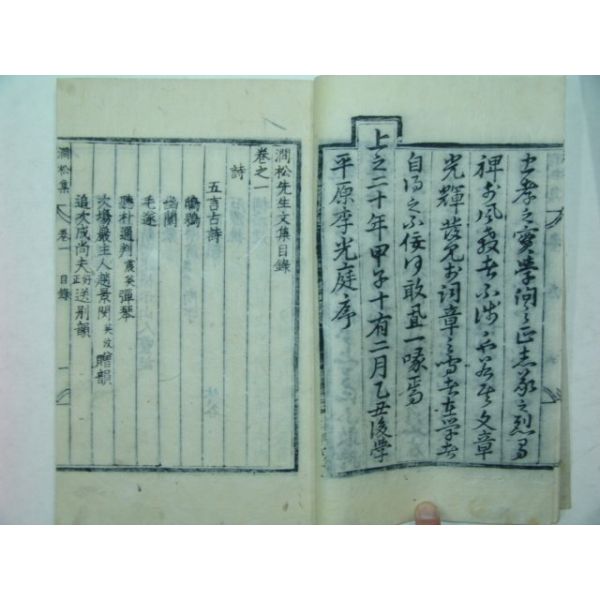 忠孝之實學問之正志義之烈有
裨於風教者不淺
光輝發見於詞章之寄者在學者
自得之不佞何敢更一喙焉
上之二十年甲子十有二月乙丑後學
平原李光庭序
澗松先生文集目錄
卷之一
詩
五言古詩
鵂鶹
毛遂
聽朴通判震英彈琴
次場巖主人趙景閔英汶贈韻
追次成尚夫好正送別韻
澗松集 卷一 目錄 一